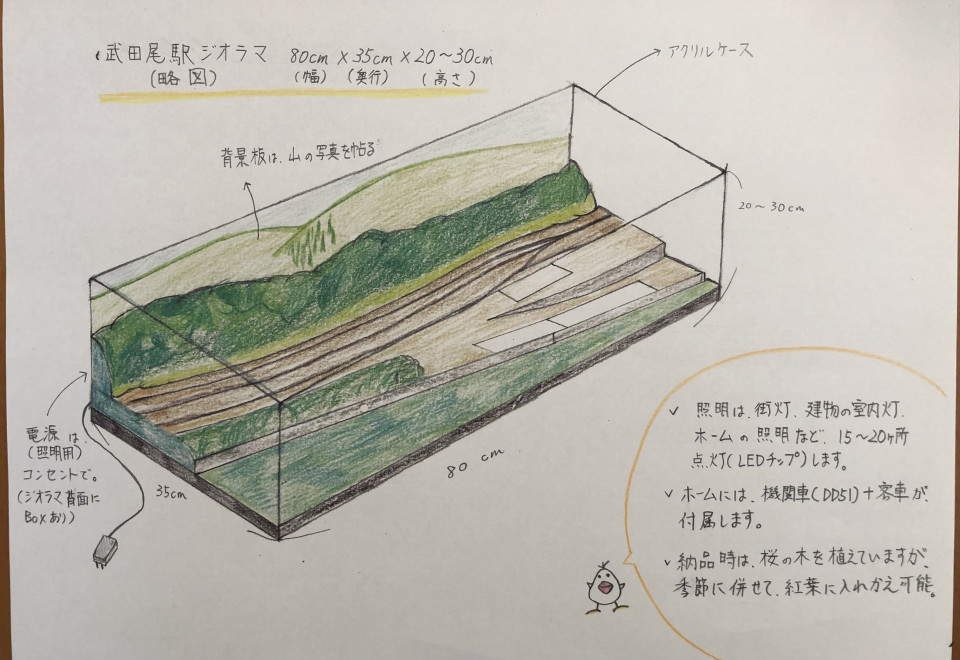 武田尾駅ジオラマ 80cm×35cm×20〜30cm
(略図) (幅) (奥行) (高さ)
アクリルケース
背景板は、山の写真を帖る
20〜30cm
電源は、
(照明用)
コンセントで。
(ジオラマ背面に
Boxあり)
35cm
80cm
✓ 照明は、街灯、建物の室内灯、
ホームの照明など、15〜20ヶ所
点灯(LEDチップ)します。
✓ ホームには、機関車(DD51)+客車が、
付属します。
✓ 納品時は、桜の木を植えていますが、
季節に併せて、紅葉に入れかえ可能。